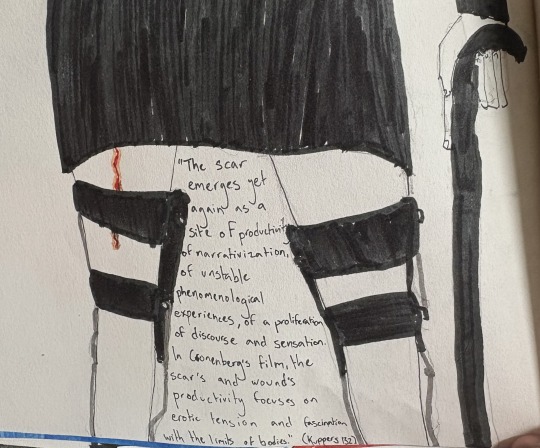 "The scar
emerges yet
again as a
site of productivity
of narrativization,
of unstable
phenomenological
experiences, of a proliferation
of discourse and sensation.
In Cronenberg's film, the
scar's and wound's
productivity focuses on
erotic tension and fascination
with the limits of bodies." (Kuppers 132)